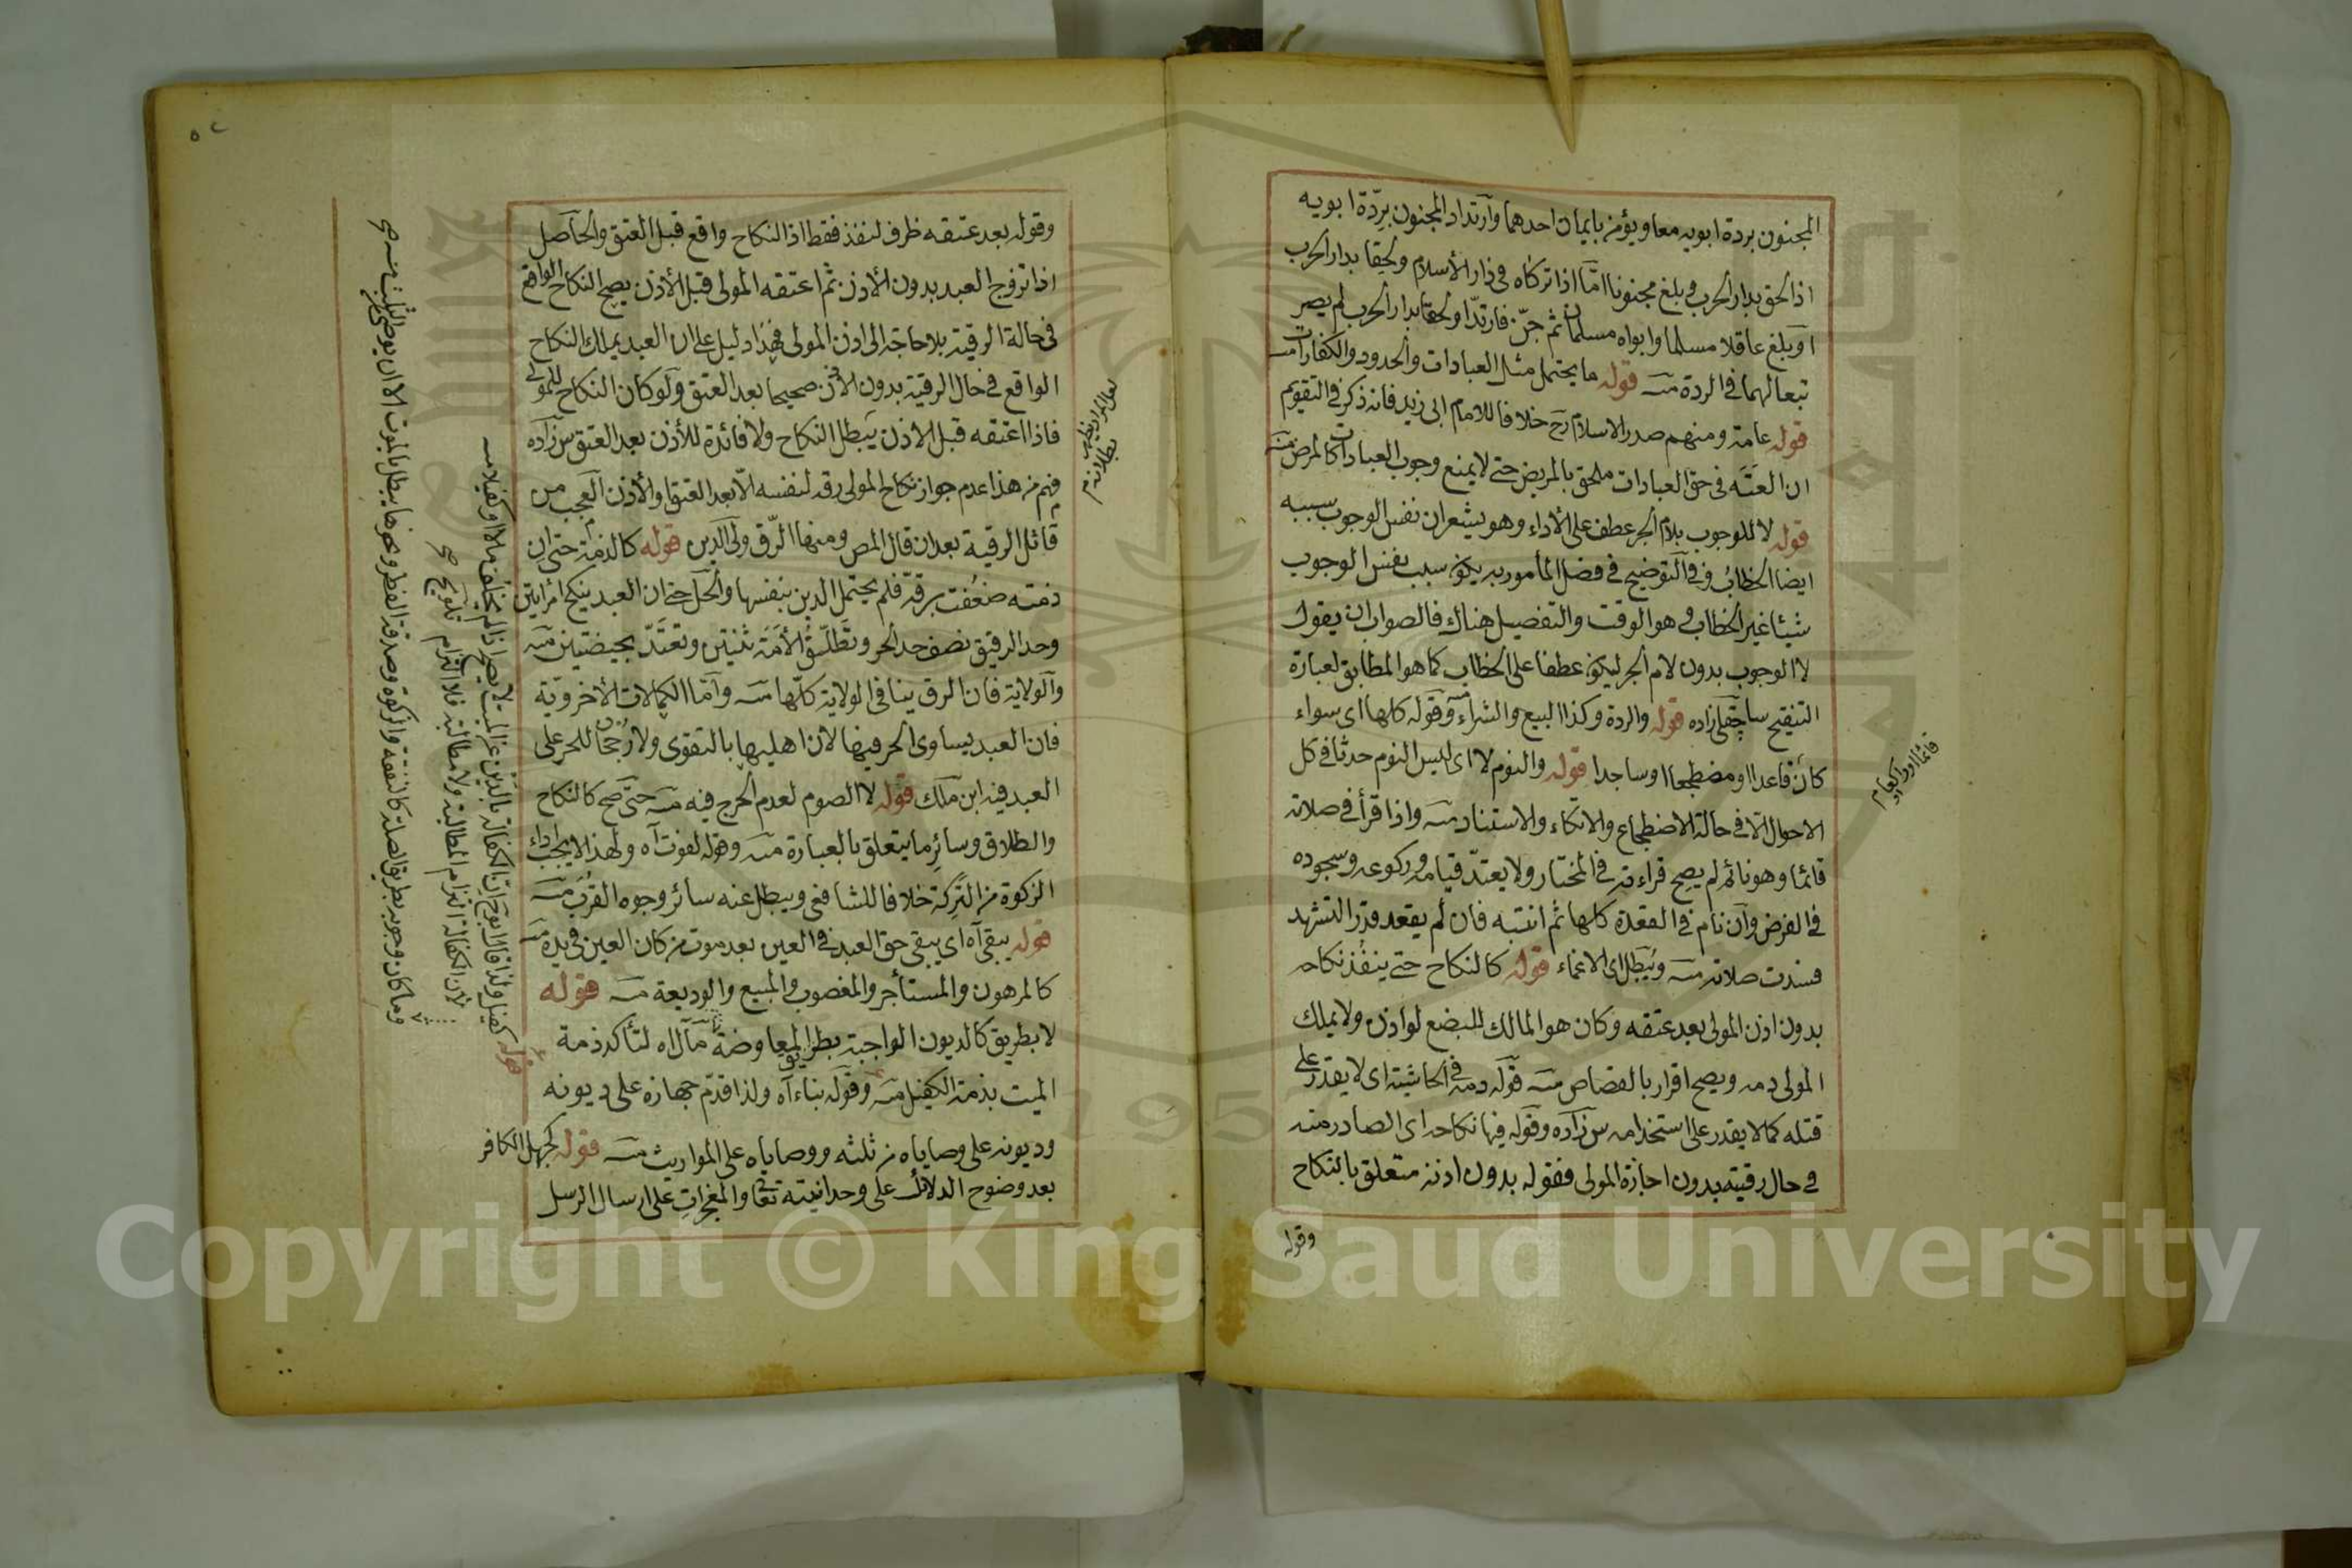 المجنون بردة ابويه معا ويؤمن بايمان احدهما وارتداد المجنون بردّة ابويه
اذا لحق بدار الحرب وبلغ مجنونا امّا اذا تركاه في دار الأسلام ولحقا بدار الحرب
او بلغ عاقلا مسلما وابواه مسلمان ثم جنّ فارتدّا ولحقا بدار الحرب لم يصر
تبعا لهما في الردة منه قوله ما يحتمل مثل العبادات والحدود والكفارات منه
قوله عامة ومنهم صدر الاسلام رح خلافا للامام ابى زيد فانه ذكر في التقويم
ان العَتَه فى حق العبادات ملحق بالمريض حتى لا يمنع وجوب العبادات كالمرض منه
قوله لا للوجوب بلام الجر عطف على الأداء وهو يشعر ان نفس الوجوب سببه
ايضا الخطاب وفي التوضيح في فصل المأمور به يكون سبب نفس الوجوب
شيئا غير الخطاب وهو الوقت والتفصيل هناك فالصواب ان يقول
لا الوجوب بدون لام الجر ليكون عطفا على الخطاب كما هو المطابق لعبارة
التنقيح ساچقلى زاده قوله والردة وكذا البيع والشراء منه وقوله كلها اى سواء
كان قاعدا او مضطجعا او ساجدا قوله والنوم لا اى ليس النوم حدثا في كل
الاحوال الّا في حالة الاضطجاع والاتكاء والاستناد منه واذا قرأ في صلاته
قائما وهو نائم لم يصح قراءته في المختار ولا يعتدّ قيامه وركوعه وسجوده
في الفرض وان نام في القعدة كلها ثم انتبه فان لم يقعد قدر التشهد
فسدت صلاته منه ويُبطل اى الاغماء قوله كالنكاح حتى ينفذ نكاحه
بدون اذن المولى بعد عتقه وكان هو المالك للبضع لو اذن ولا يملك
المولى دمه ويصح اقراره بالقصاص منه قوله دمه في الحاشية اى لا يقدر على
قتله كما لا يقدر على استخدامه س زاده وقوله فيها نكاحه اى الصادر منه
في حال رقيته بدون اجازة المولى فقوله بدون اذنه متعلق بالنكاح
وقوله
قائما او راكعا م
وقوله بعد عتقه ظرف لنفذ فقط اذ النكاح واقع قبل العتق والحاصل
اذا تزوج العبد بدون الأذن ثم اعتقه المولى قبل الأذن يصح النكاح الواقع
في حالة الرقية بلا حاجة الى اذن المولى فهذا دليل على ان العبد يملك النكاح
الواقع في حال الرقية بدون الأذن صحيحا بعد العتق ولو كان النكاح للمولى
فاذا اعتقه قبل الاذن يبطل النكاح ولا فائدة للأذن بعد العتق س زاده
فهم من هذا عدم جواز نكاح المولى رقه لنفسه الّا بعد العتق او الأذن العجب من
قائل الرقية بعد ان قال المص ومنها الرّق ولى الدين قوله كالذمة حتى ان
ذمته ضعُفت برقّه فلم يحتمل الدين بنفسها والحل حتى ان العبد ينكح امرأتين
وحد الرقيق نصف حد الحر وتطلّق الأَمَة ثنتين وتعتدّ بحيضتين منه
والولاية فان الرق ينافى الولاية كلّها منه وامّا الكمالات الأخرويّة
فان العبد يساوى الحر فيها لأن اهليها بالتقوى ولا رُجحان للحر على
العبد فيه ابن ملك قوله لا الصوم لعدم الحرج فيه منه حتى صح كالنكاح
والطلاق وسائر ما يتعلق بالعبارة منه وقوله لفوت آه ولهذا لا يجب اداء
الزكوة من التركة خلافا للشافعى ويبطل عنه سائر وجوه القرب منه
قوله يبقى آه اى يبقى حق العبد في العين بعد موت من كان العين في يده منه
كالمرهون والمستأجر والمغصوب والمبيع والوديعة منه قوله
لا بطريق كالديون الواجبة بطريق المعاوضة مال آه لتأكد ذمة
الميت بذمة الكفيل منه وقوله بناء آه ولذا قدّم جهازه على ديونه
وديونه على وصاياه من ثلثه ووصاياه على المواريث منه قوله كجهل الكافر
بعد وضوح الدلائل على وحدانيته تعا والمعجزات على ارسال الرسل
قوله كفيل ولذا قال ابو ح ان الكفالة بالدين عن الميت لا يصح اذا لم يخلف مالا او كفيلا منه
لأن الكفالة التزام المطالبة ولا مطالبة فلا التزام تلويح صح
وما كان وجوبه بطريق الصلة كالنفقة والزكوة وصدقة الفطر ونحوها يبطل بالموت الا ان يوصى من الثلث منه صح